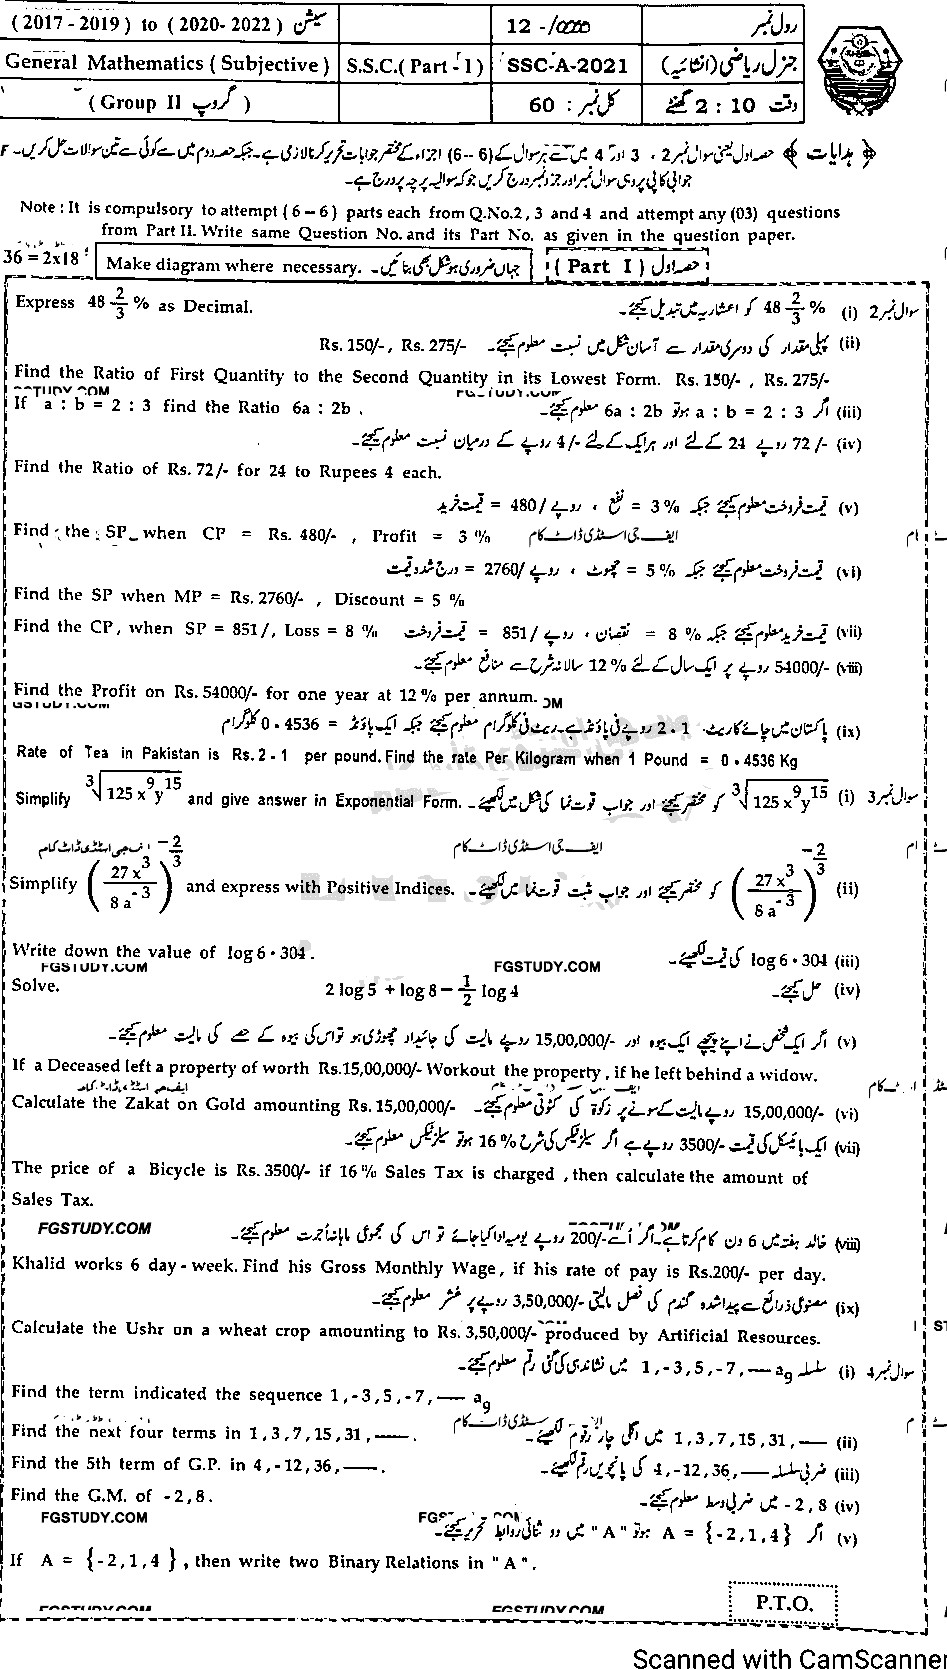 (2017-2019) to (2020-2022) سیشن 12- رول نمبر
General Mathematics (Subjective) S.S.C.(Part-1) SSC-A-2021 جنرل ریاضی (انشائیہ)
(Group II گروپ) کل نمبر : 60 وقت 2 : 10 گھنٹے
﴿ ہدایات ﴾ حصہ اول یعنی سوال نمبر 2 ، 3 اور 4 میں سے ہر سوال کے (6–6) اجزاء کے مختصر جوابات تحریر کرنا لازمی ہے۔ جبکہ حصہ دوم میں سے کوئی سے تین سوالات حل کریں۔
جوابی کاپی پر وہی سوال نمبر اور جزو نمبر درج کریں جو کہ سوالیہ پرچہ پر درج ہے۔
Note : It is compulsory to attempt (6–6) parts each from Q.No.2, 3 and 4 and attempt any (03) questions
from Part II. Write same Question No. and its Part No. as given in the question paper.
36 = 2x18 Make diagram where necessary. جہاں ضروری ہو شکل بھی بنائیں۔ (Part I) حصہ اول
Express 48 2/3 % as Decimal. سوال نمبر 2 (i) 48 2/3 % کو اعشاریہ میں تبدیل کیجئے۔
(ii) پہلی مقدار کی دوسری مقدار سے آسان شکل میں نسبت معلوم کیجئے۔ Rs. 150/-, Rs. 275/-
Find the Ratio of First Quantity to the Second Quantity in its Lowest Form. Rs. 150/- , Rs. 275/-
FGSTUDY.COM
If a : b = 2 : 3 find the Ratio 6a : 2b . (iii) اگر a : b = 2 : 3 ہو تو 6a : 2b معلوم کیجئے۔
(iv) 72/- روپے 24 کے لئے اور ہر ایک کے لئے 4/- روپے کے درمیان نسبت معلوم کیجئے۔
Find the Ratio of Rs. 72/- for 24 to Rupees 4 each.
(v) قیمت فروخت معلوم کیجئے جبکہ 3% = نفع ، روپے /480 = قیمت خرید
Find the SP when CP = Rs. 480/- , Profit = 3 % ایف جی اسٹڈی ڈاٹ کام
(vi) قیمت فروخت معلوم کیجئے جبکہ 5% = چھوٹ ، روپے /2760 = درج شدہ قیمت
Find the SP when MP = Rs. 2760/- , Discount = 5 %
Find the CP, when SP = 851/, Loss = 8 % (vii) قیمت خرید معلوم کیجئے جبکہ 8 % = نقصان ، روپے /851 = قیمت فروخت
(viii) 54000/- روپے پر ایک سال کے لئے 12% سالانہ شرح سے منافع معلوم کیجئے۔
Find the Profit on Rs. 54000/- for one year at 12 % per annum.
(ix) پاکستان میں چائے کا ریٹ 2.1 روپے فی پاؤنڈ ہے۔ ریٹ فی کلوگرام معلوم کیجئے جبکہ ایک پاؤنڈ = 0.4536 کلوگرام
Rate of Tea in Pakistan is Rs. 2.1 per pound. Find the rate Per Kilogram when 1 Pound = 0.4536 Kg
Simplify ∛(125x⁹y¹⁵) and give answer in Exponential Form. سوال نمبر 3 (i) ∛(125x⁹y¹⁵) کو مختصر کیجئے اور جواب قوت نما کی شکل میں لکھیئے۔
ایف جی اسٹڈی ڈاٹ کام ایف جی اسٹڈی ڈاٹ کام
Simplify (27x³/8a⁻³)^(-2/3) and express with Positive Indices. (ii) (27x³/8a⁻³)^(-2/3) کو مختصر کیجئے اور جواب مثبت قوت نما میں لکھیئے۔
Write down the value of log 6.304 . (iii) log 6.304 کی قیمت لکھیئے۔
FGSTUDY.COM FGSTUDY.COM
Solve. 2 log 5 + log 8 – 1/2 log 4 (iv) حل کیجئے۔
(v) اگر ایک شخص نے اپنے پیچھے ایک بیوہ اور 15,00,000/- روپے مالیت کی جائیداد چھوڑی ہو تو اس کی بیوہ کے حصے کی مالیت معلوم کیجئے۔
If a Deceased left a property of worth Rs.15,00,000/- Workout the property, if he left behind a widow.
Calculate the Zakat on Gold amounting Rs. 15,00,000/- (vi) 15,00,000/- روپے مالیت کے سونے پر زکوٰۃ کی کٹوتی معلوم کیجئے۔
(vii) ایک بائیسکل کی قیمت 3500/- روپے ہے اگر سیلز ٹیکس کی شرح 16% ہو تو سیلز ٹیکس معلوم کیجئے۔
The price of a Bicycle is Rs. 3500/- if 16 % Sales Tax is charged , then calculate the amount of
Sales Tax.
FGSTUDY.COM (viii) خالد ہفتہ میں 6 دن کام کرتا ہے۔ اگر اُسے 200/- روپے یومیہ ادا کیا جائے تو اس کی مجموعی ماہانہ اُجرت معلوم کیجئے۔
Khalid works 6 day-week. Find his Gross Monthly Wage, if his rate of pay is Rs.200/- per day.
(ix) مصنوعی ذرائع سے پیدا شدہ گندم کی فصل مالیتی 3,50,000/- روپے پر عشر معلوم کیجئے۔
Calculate the Ushr on a wheat crop amounting to Rs. 3,50,000/- produced by Artificial Resources.
سوال نمبر 4 (i) سلسلہ 1, -3, 5, -7, — a₉ میں نشاندہی کی گئی رقم معلوم کیجئے۔
Find the term indicated the sequence 1, -3, 5, -7, — a₉
Find the next four terms in 1, 3, 7, 15, 31, —. (ii) 1, 3, 7, 15, 31, — میں اگلی چار رقوم لکھیئے۔
Find the 5th term of G.P. in 4, -12, 36, —. (iii) ضربی سلسلہ 4, -12, 36, — کی پانچویں رقم لکھیئے۔
Find the G.M. of -2, 8. (iv) -2, 8 میں ضربی وسط معلوم کیجئے۔
FGSTUDY.COM
(v) اگر A = {-2, 1, 4} ہو تو "A" میں دو ثنائی روابط تحریر کیجئے۔
If A = {-2, 1, 4 } , then write two Binary Relations in " A " .
FGSTUDY.COM FGSTUDY.COM
P.T.O.
Scanned with CamScanner